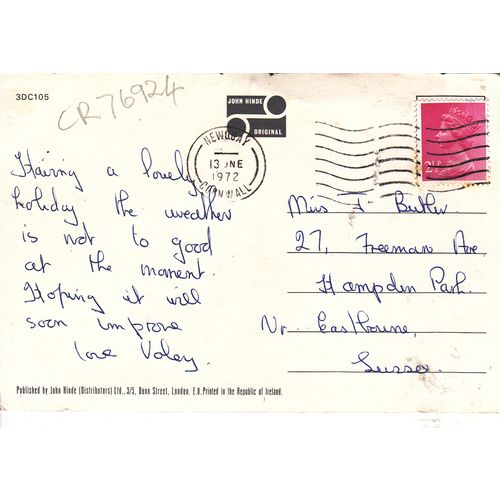 3DC105
CR76924
JOHN HINDE
ORIGINAL
NEWQUAY
13 JNE
1972
CORNWALL
2½P
Having a lovely
holiday the weather
is not to good
at the moment.
Hoping it will
soon improve
love Valey.
Miss F Butler.
27, Freeman Ave.
Hampden Park.
Nr. Eastbourne,
Sussex.
Published by John Hinde (Distributors) Ltd., 3/5, Dunn Street, London, E.8. Printed in the Republic of Ireland.